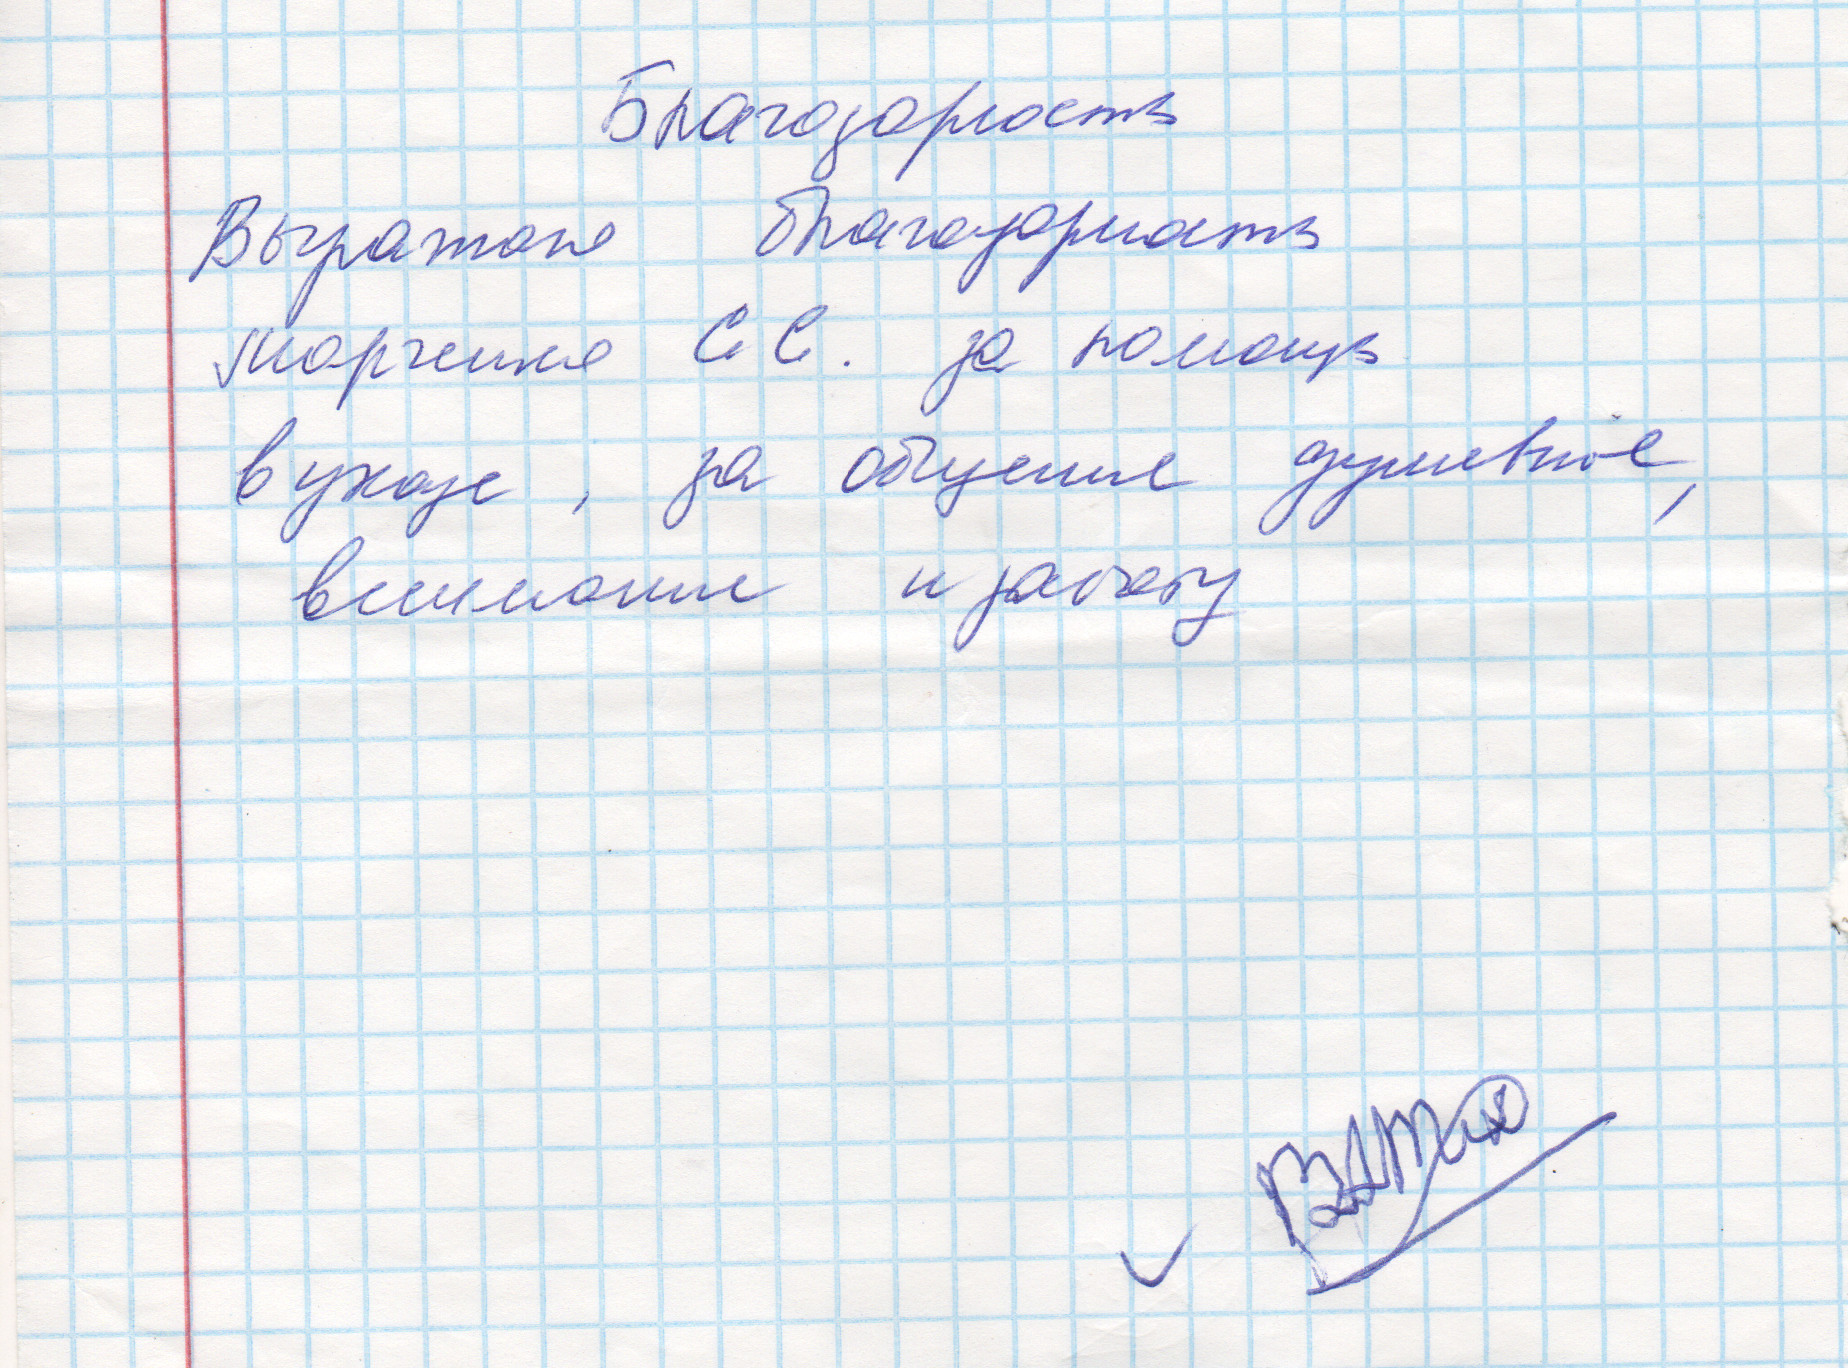 Благодарность
Выражаю благодарность
Марченко С С. за помощь
в уходе, за общение душевное,
внимание и заботу